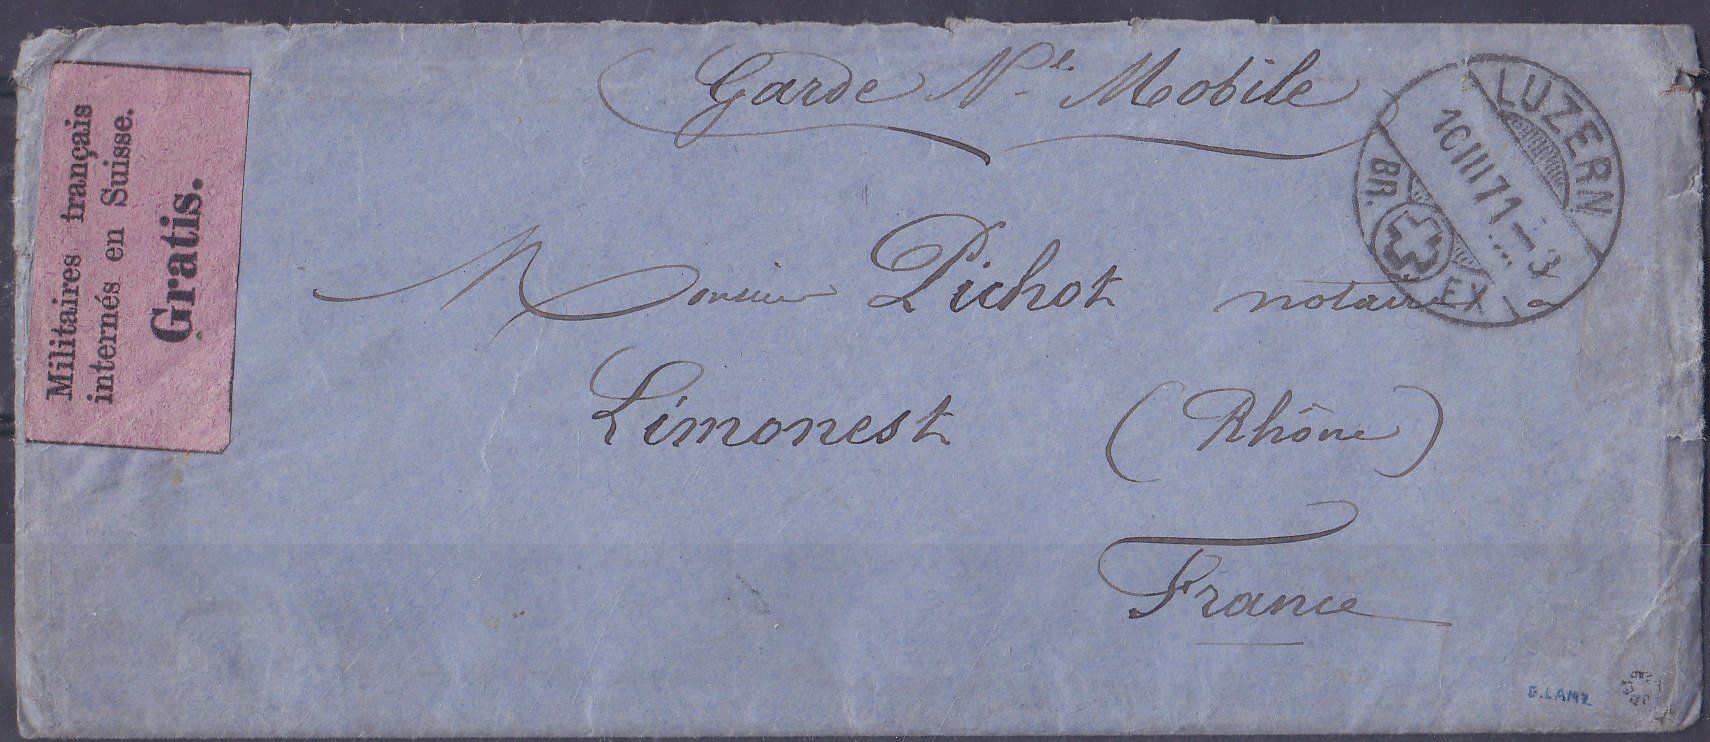 Militaires français
internés en Suisse.
Gratis.
Garde Nle Mobile
LUZERN
10 III 71 - 3
BR. EX
Monsieur Pichot notaire à
Limonest (Rhône)
France